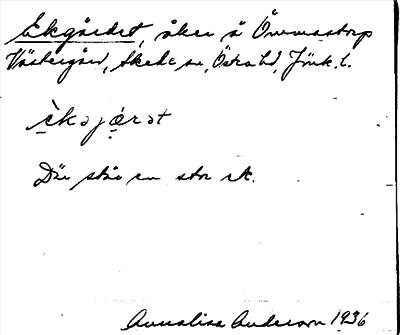 Ekgärdet, åker å Ömmastorp
Västergård, Skede sn, Östra hd, Jönk. l.
èkəjæ̣rət
Där står en stor ek.
Annalisa Anderson 1936